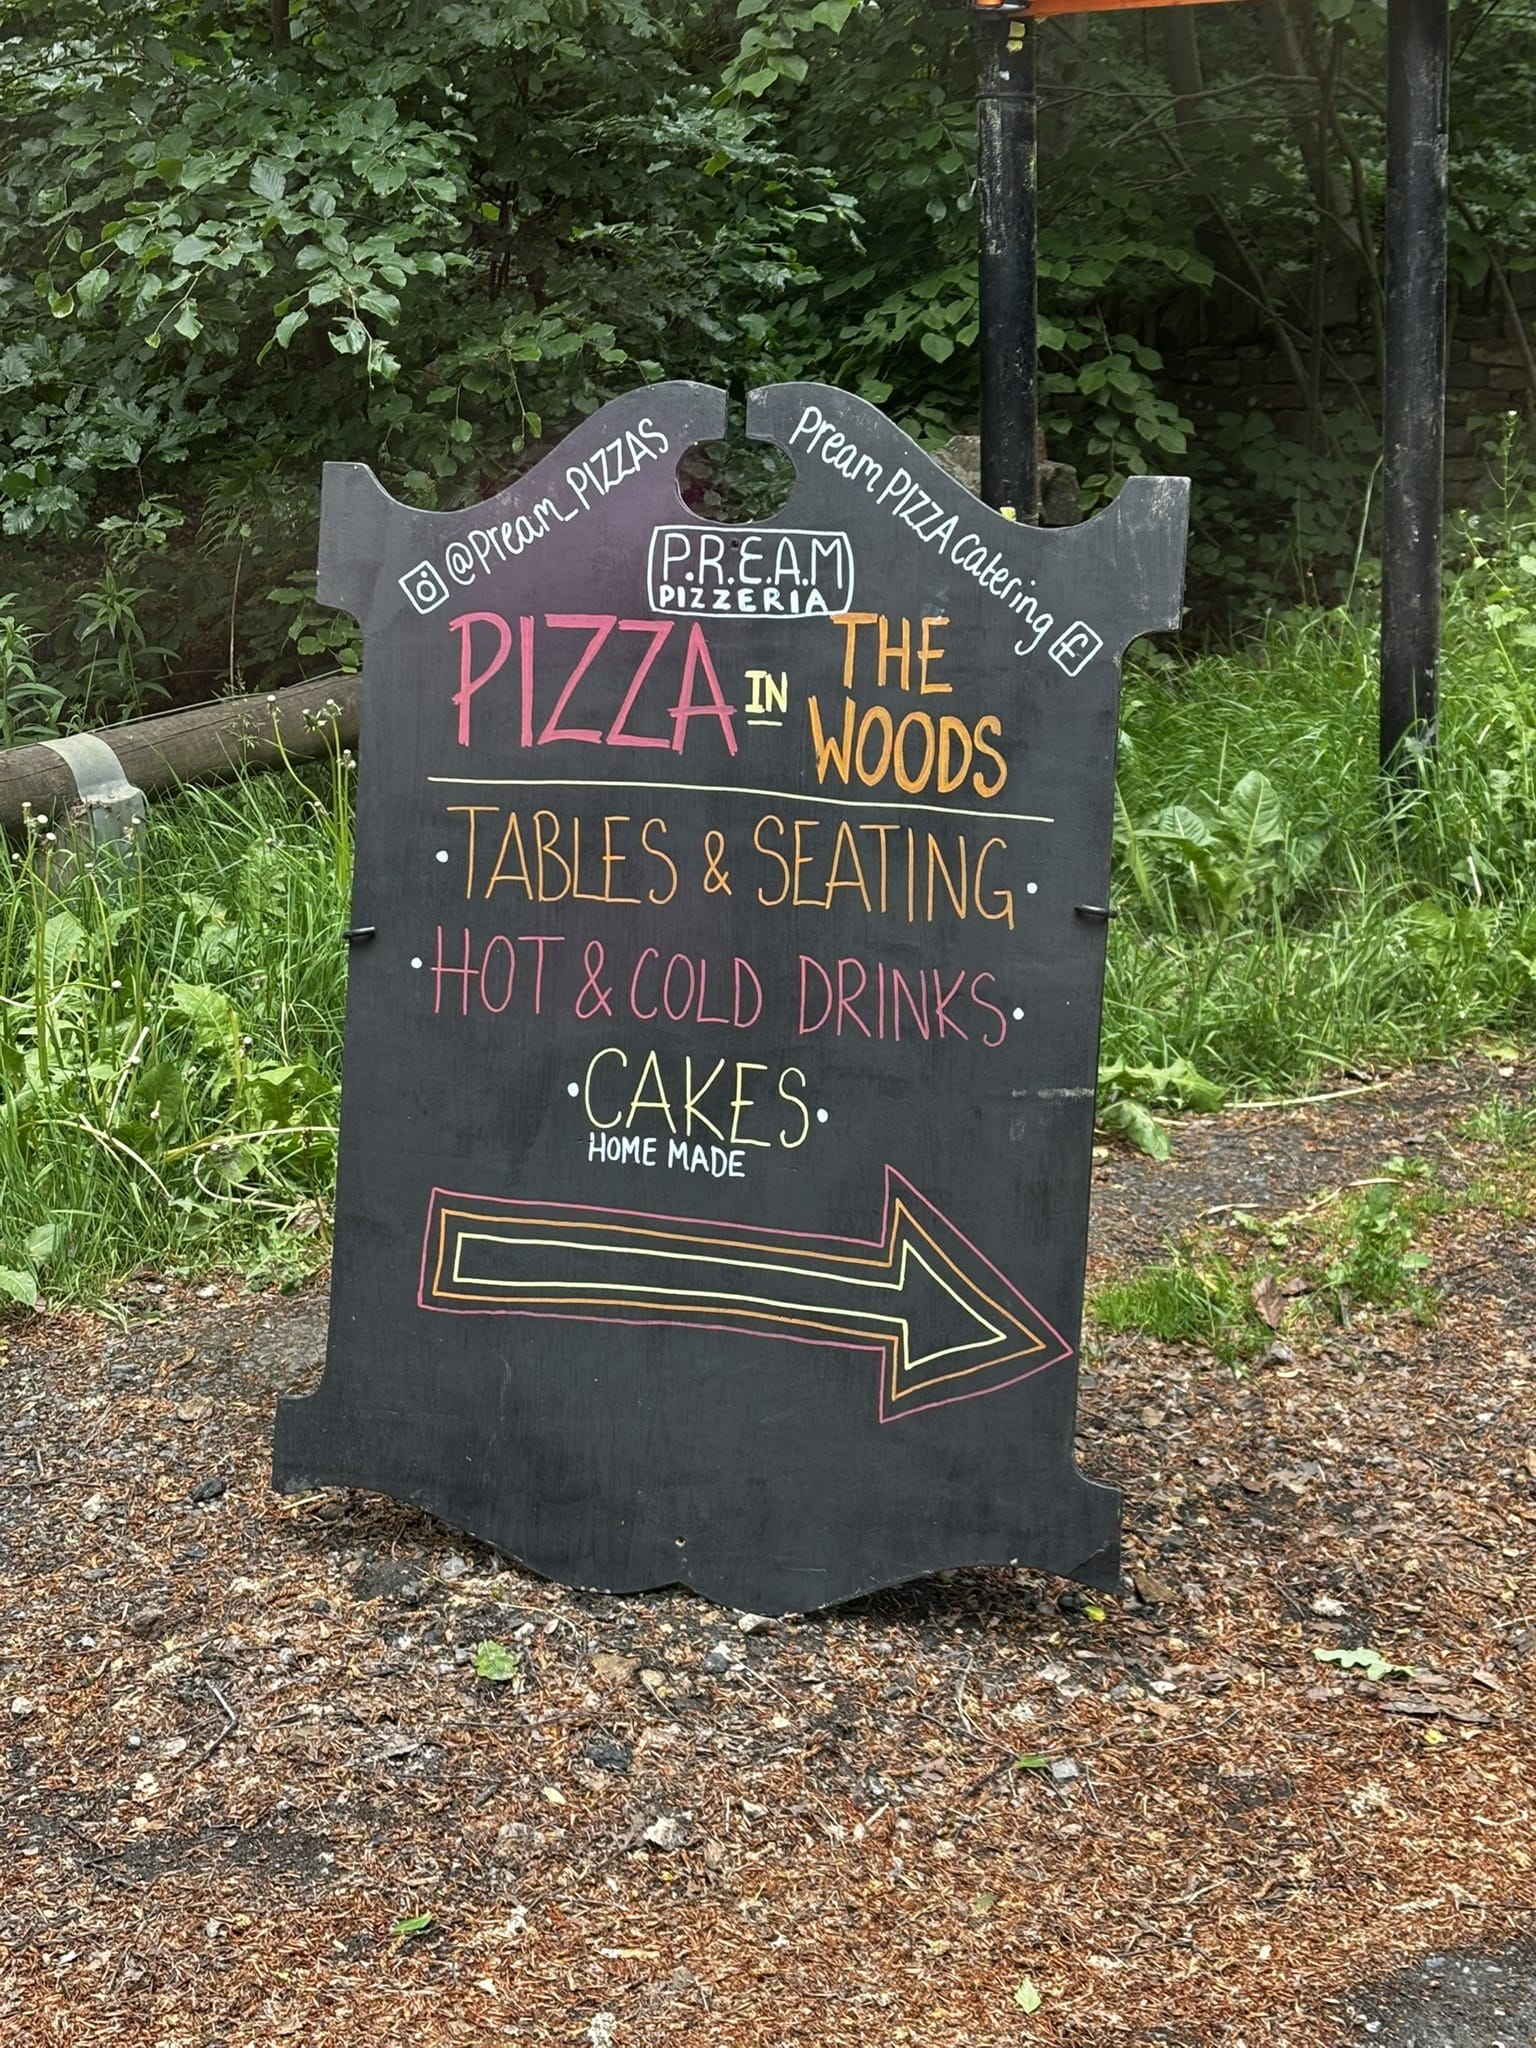 @pream_PIZZAS
Pream PIZZA catering
P.R.E.A.M
PIZZERIA
PIZZA IN THE WOODS
TABLES & SEATING
HOT & COLD DRINKS
CAKES
HOME MADE